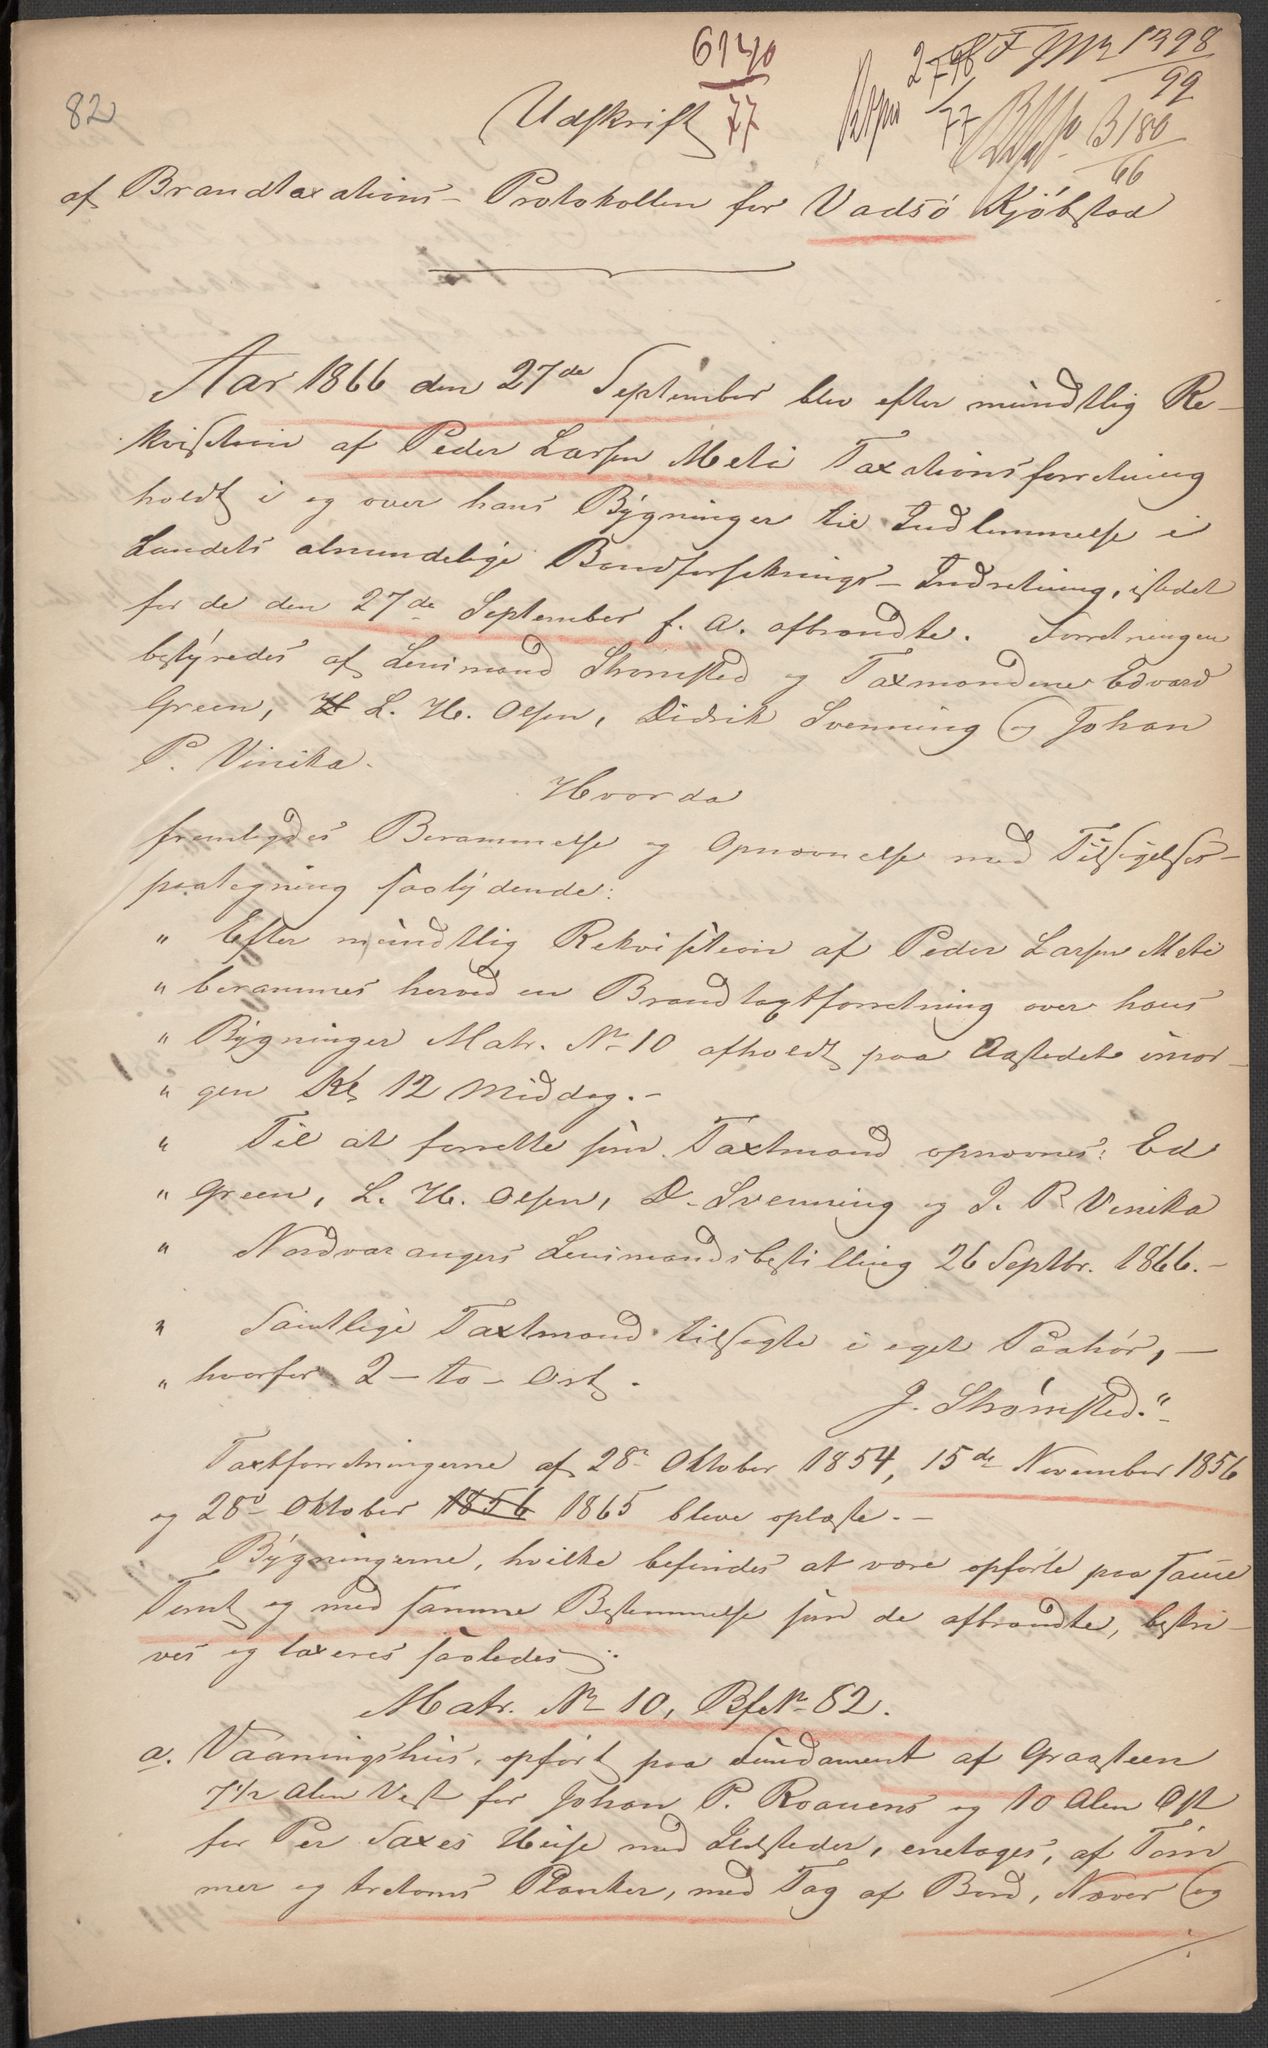 6740
77
2798
77
VF JNr 1398
99
B 180
66
82
Udskrift
af Brandtaxations-Protokollen for Vadsö Kjöbstad
Aar 1866 den 27de September blev efter mündtlig Re-
kvisition af Peder Larsen Meti Taxationsforretning
holdt i og over hans Bygninger til Indlemmelse i
Landets almindelige Brandforsikrings-Indretning, istedet
for de den 27de September f. A. afbrændte. Forretningen
bestyredes af Lensmand Strömsted og Taxmændene Edvard
Green, H L. H. Olsen, Didrik Svenning og Johan
P. Vinika.
Hvorda
fremlagdes Berammelse og Opnævnelse med Tilsigelses-
paategning saalydende:
" Efter mündtlig Rekvisition af Peder Larsen Meti
" berammes herved en Brandtaxtforretning over hans
" Bygninger Matr. No 10 afholdt paa Aastedet imor-
" gen Kl 12 Middag. -
" Til at forrette som Taxtmænd opnævnes: Ed
" Green, L. H. Olsen, D. Svenning og J. P. Vinika
" Nordvarangers Lensmandsbestilling 26 Septbr. 1866. -
" Samtlige Taxtmænd tilsagte i eget Paahör, -
" hvorfor 2 - to - Ort.
J. Strömsted."
Taxtforretningerne af 28de Oktober 1854, 15de November 1856
og 28de Oktober 1856 1865 bleve oplæste. -
Bygningerne, hvilke befindes at være opförte paa samme
Tomt og med samme Bestemmelse som de afbrændte, beskri-
ves og taxeres saaledes:
Matr. No 10, Bf No 82.
a. Vaaningshüs, opfört paa Fündament af Graasteen
7 1/2 Alen Vest for Johan P. Roanens og 10 Alen Öst
for Per Saxes Huse med Ildsteder, enetages, af Töm
mer og tretoms Planker, med Tag af Bord, Næver og